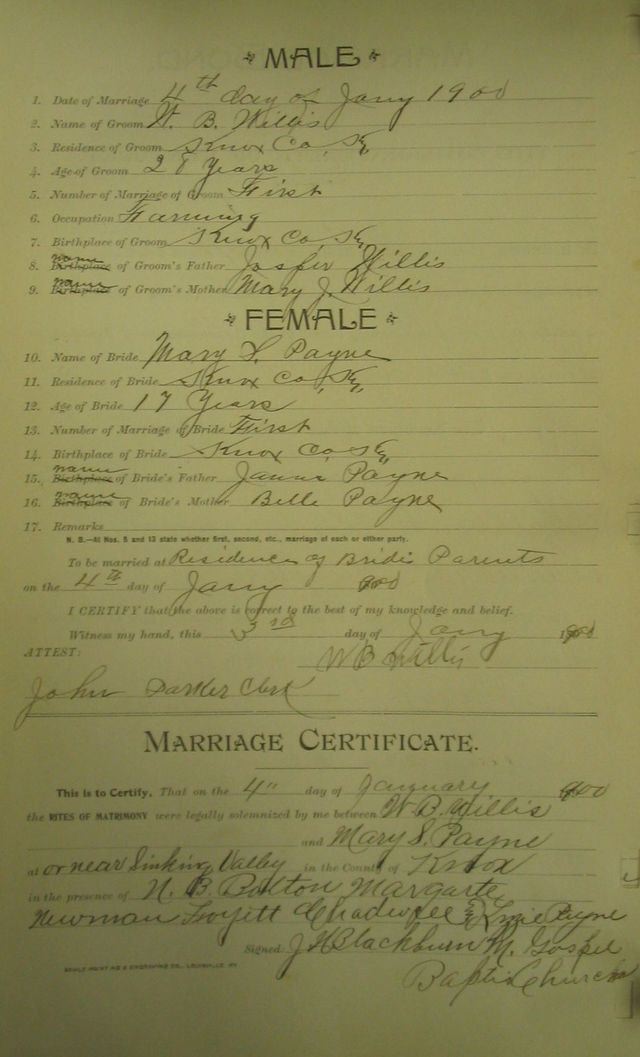 MALE
1. Date of Marriage 4th day of Jany 1900
2. Name of Groom W. B. Willis
3. Residence of Groom Knox Co, Ky,
4. Age of Groom 28 Years
5. Number of Marriage of Groom First
6. Occupation Farming
7. Birthplace of Groom Knox Co, Ky,
8. Birthplace name of Groom's Father Willis
9. Birthplace name of Groom's Mother Mary J. Willis
FEMALE
10. Name of Bride Mary S. Payne
11. Residence of Bride Knox Co, Ky,
12. Age of Bride 17 Years
13. Number of Marriage of Bride First
14. Birthplace of Bride Knox Co, Ky
15. Birthplace name of Bride's Father Payne
16. Birthplace name of Bride's Mother Belle Payne
17. Remarks
N. B.—At Nos. 5 and 13 state whether first, second, etc., marriage of each or either party.
To be married at Residence of Brides Parents
on the 4th day of Jany 1900
I CERTIFY that the above is correct to the best of my knowledge and belief.
Witness my hand, this 3rd day of Jany 1900
ATTEST: W B Willis
John Parker Clerk
MARRIAGE CERTIFICATE.
This is to Certify, That on the 4" day of 1900
the RITES OF MATRIMONY were legally solemnized by me between W. B. Willis
and Mary S. Payne
at or near Sinking Valley in the County of Knox
in the presence of N. B. Bolton Margarte
Newman Chadwell & Payne
Signed: J H Blackburn M. Gospel
Baptist Church